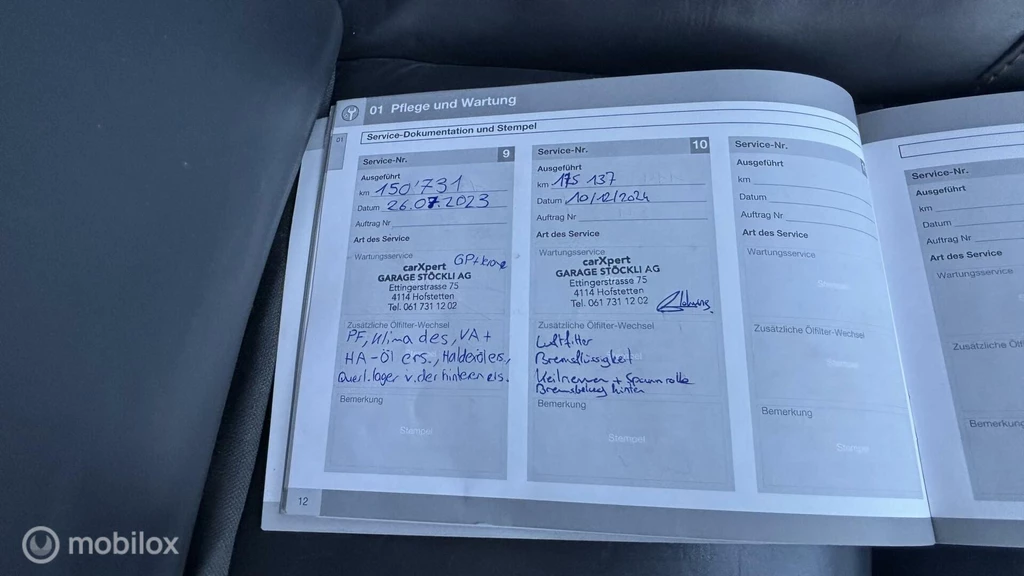 01 Pflege und Wartung
01
Service-Dokumentation und Stempel
Service-Nr. 9
Ausgeführt
km 150'731
Datum 26.07.2023
Auftrag Nr
Art des Service
Wartungsservice
GP+
carXpert
GARAGE STÖCKLI AG
Ettingerstrasse 75
4114 Hofstetten
Tel. 061 731 12 02
Zusätzliche Ölfilter-Wechsel
PF, Klima des, VA+
HA-Öl ers., Haldexöl ers,
Querl.lager v. der hinteren ers.
Bemerkung
Stempel
12
Service-Nr. 10
Ausgeführt
km 175 137
Datum 10/12/2024
Auftrag Nr
Art des Service
Wartungsservice
carXpert
GARAGE STÖCKLI AG
Ettingerstrasse 75
4114 Hofstetten
Tel. 061 731 12 02
Zusätzliche Ölfilter-Wechsel
Luftfilter
Bremsflüssigkeit
Keilriemen + Spannrolle
Bremsbelag hinten
Bemerkung
Stempel
Service-Nr.
Ausgeführt
km
Datum
Auftrag Nr
Art des Service
Wartungsservice
Stempel
Zusätzliche Ölfilter-Wechsel
Stempel
Bemerkung
Stempel
Service-Nr.
Ausgeführt
km
Datum
Auftrag Nr
Art des Service
Wartungsservice
Zusätzliche Ölfilt
Bemerkung
mobilox